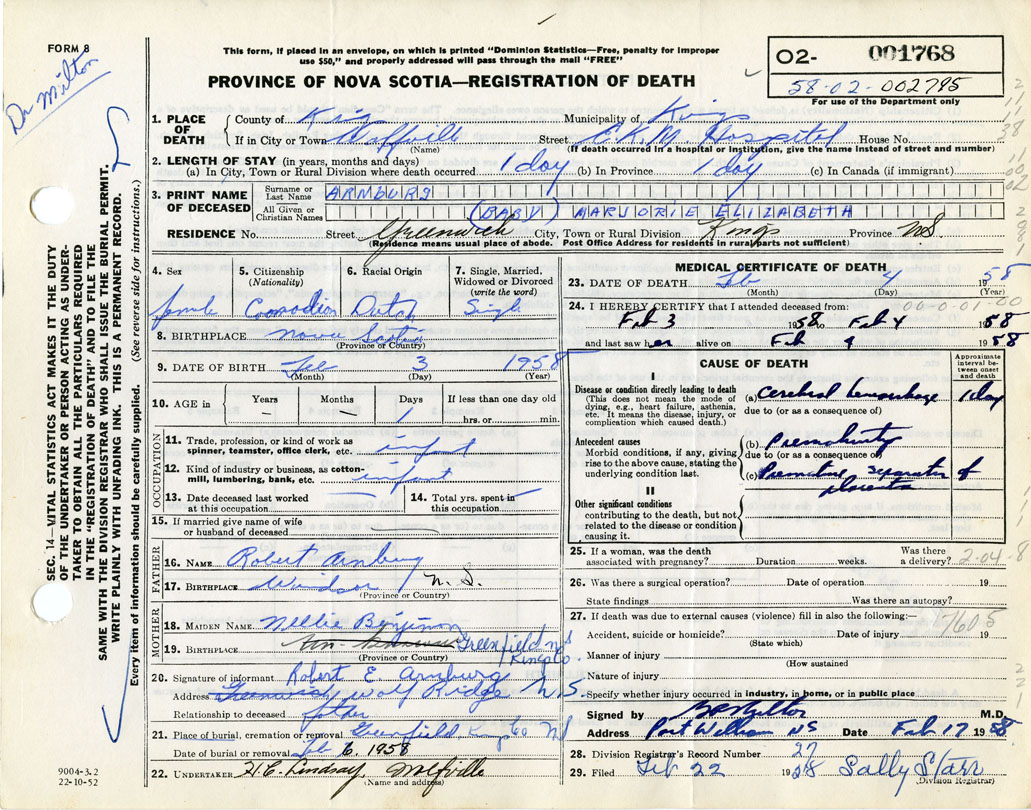 FORM 8
Dr Milton
This form, if placed in an envelope, on which is printed "Dominion Statistics—Free, penalty for improper
use $50," and properly addressed will pass through the mail "FREE"
PROVINCE OF NOVA SCOTIA—REGISTRATION OF DEATH
02- 001768
58-02-002795
For use of the Department only
SEC. 14—VITAL STATISTICS ACT MAKES IT THE DUTY
OF THE UNDERTAKER OR PERSON ACTING AS UNDER-
TAKER TO OBTAIN ALL THE PARTICULARS REQUIRED
IN THE "REGISTRATION OF DEATH" AND TO FILE THE
SAME WITH THE DIVISION REGISTRAR WHO SHALL ISSUE THE BURIAL PERMIT.
WRITE PLAINLY WITH UNFADING INK. THIS IS A PERMANENT RECORD.
Every item of information should be carefully supplied. (See reverse side for instructions.)
1. PLACE OF DEATH County of Kings Municipality of Kings
If in City or Town Wolfville Street E.K.M. Hospital House No.
(Name) (If death occurred in a hospital or institution, give the name instead of street and number)
2. LENGTH OF STAY (in years, months and days)
(a) In City, Town or Rural Division where death occurred 1 day (b) In Province 1 day (c) In Canada (if immigrant)
3. PRINT NAME OF DECEASED Surname or Last Name ARMBURG
All Given or Christian Names (BABY) MARJORIE ELIZABETH
RESIDENCE No. Street Greenwich City, Town or Rural Division Kings Province N.S.
(Residence means usual place of abode. Post Office Address for residents in rural parts not sufficient)
4. Sex 5. Citizenship (Nationality) 6. Racial Origin 7. Single, Married, Widowed or Divorced (write the word)
female Canadian Dutch Single
8. BIRTHPLACE Nova Scotia
(Province or Country)
9. DATE OF BIRTH Feb 3 1958
(Month) (Day) (Year)
10. AGE in Years Months Days If less than one day old
— — 1 hrs. or min.
OCCUPATION
11. Trade, profession, or kind of work as
spinner, teamster, office clerk, etc. infant
12. Kind of industry or business, as cotton-
mill, lumbering, bank, etc. infant
13. Date deceased last worked at this occupation 14. Total yrs. spent in this occupation
15. If married give name of wife
or husband of deceased
FATHER
16. NAME Robert Armburg
17. BIRTHPLACE Windsor N.S.
(Province or Country)
MOTHER
18. MAIDEN NAME Nellie Benjimon
19. BIRTHPLACE Greenfield NS
Kings Co.
(Province or Country)
20. Signature of informant Robert E. Armburg
Address Greenwich Wolf Ridge N.S.
Relationship to deceased father
21. Place of burial, cremation or removal Greenfield, Kings Co NS
Date of burial or removal Feb 6, 1958
22. UNDERTAKER H.C. Lindsay Wolfville
(Name and address)
9004-3.2
22-10-52
MEDICAL CERTIFICATE OF DEATH
23. DATE OF DEATH Feb 4 1958
(Month) (Day) (Year)
24. I HEREBY CERTIFY that I attended deceased from:
Feb 3 1958 to Feb 4 1958
and last saw her alive on Feb 4 1958
CAUSE OF DEATH
Approximate interval between onset and death
I
Disease or condition directly leading to death
(This does not mean the mode of
dying, e.g., heart failure, asthenia,
etc. It means the disease, injury, or
complication which caused death.)
(a) Cerebral hemorrhage 1 day
due to (or as a consequence of)
Antecedent causes
Morbid conditions, if any, giving
rise to the above cause, stating the
underlying condition last.
(b) Prematurity
due to (or as a consequence of)
(c) Premature separation of
placenta
II
Other significant conditions
contributing to the death, but not
related to the disease or condition
causing it.
25. If a woman, was the death
associated with pregnancy? Duration weeks. Was there a delivery? 2-04-8
26. Was there a surgical operation? Date of operation 19
State findings Was there an autopsy?
27. If death was due to external causes (violence) fill in also the following:— 7605
Accident, suicide or homicide? Date of injury 19
(State which)
Manner of injury
(How sustained)
Nature of injury
Specify whether injury occurred in industry, in home, or in public place
Signed by M.D.
Address Port Williams NS Date Feb 17 1958
28. Division Registrar's Record Number 27
29. Filed Feb 22 1958 Sally Starr
(Division Registrar)